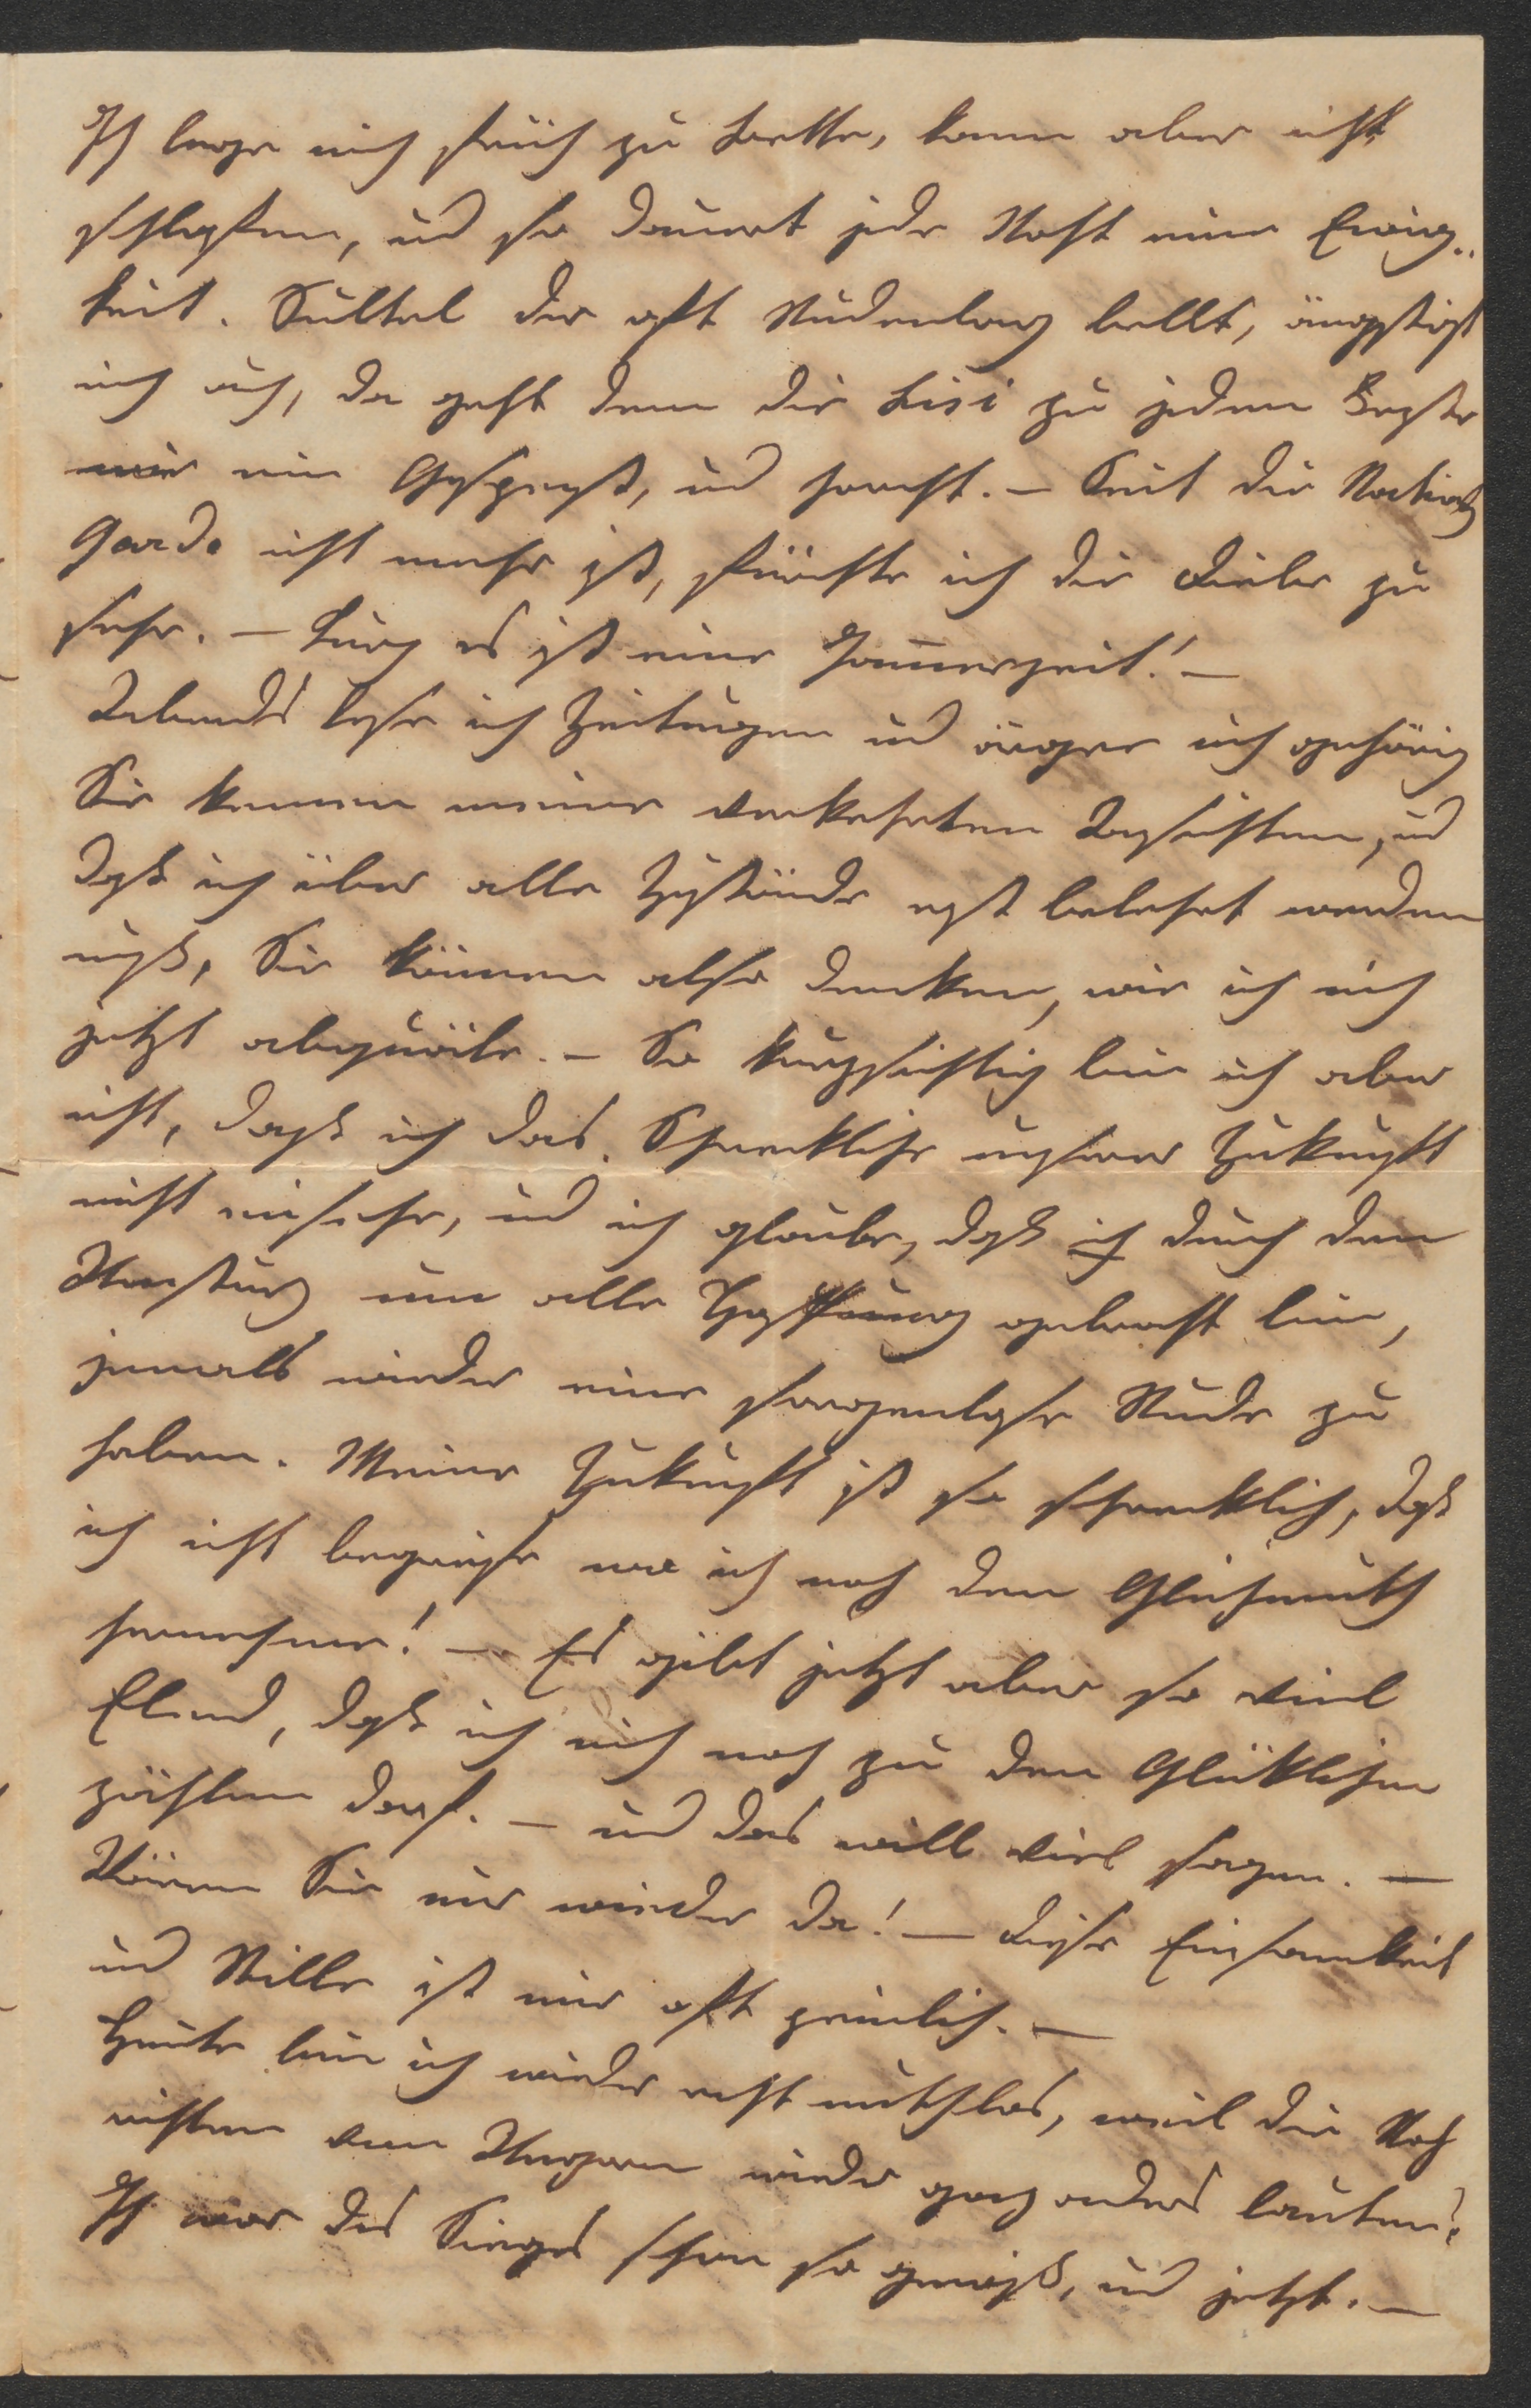 Ich lege mich früh zu Bette, kann aber nicht
schlafen, und so dauert jede Nacht eine Ewig-
keit. Sultel der oft Stundenlang bellt, ängstigt
mich auch, da geht denn die Lisi zu jedem Fenster
wie ein Gespenst, und horcht. – Seit die National
Garde nicht mehr ist, fürchte ich die Diebe zu
sehr. – Kurz es ist eine Jam̅erzeit! –
Abends lese ich Zeitungen und ärgere mich gehörig
Sie kennen meine verkehrten Ansichten, und
daß ich über alle Zustände erst belehrt werden
muß, Sie können also denken, wie ich mich
jetzt abquäle. – So kurzsichtig bin ich aber
nicht, daß ich das Schreckliche unserer Zukunft
nicht einsehe, und ich glaube, daß ich durch den
Umsturz um alle Hoffnung gebracht bin,
jemals wieder eine sorgenlose Stunde zu
haben. Meine Zukunft ist so schrecklich, daß
ich nicht begreife wo ich noch den Gleichmuth
hernehme! – Es gibt jetzt aber so viel
Elend, daß ich mich noch zu den Glücklichen
zählen darf. – und das will viel sagen. –
Wären Sie nur wieder da! – Diese Einsamkeit
und Stille ist mir oft peinlich. –
Heute bin ich wieder recht muthlos, weil die Nach
richten von Ungarn wieder ganz anders lauten.
Ich war des Sieges schon so gewiß, und jetzt. –